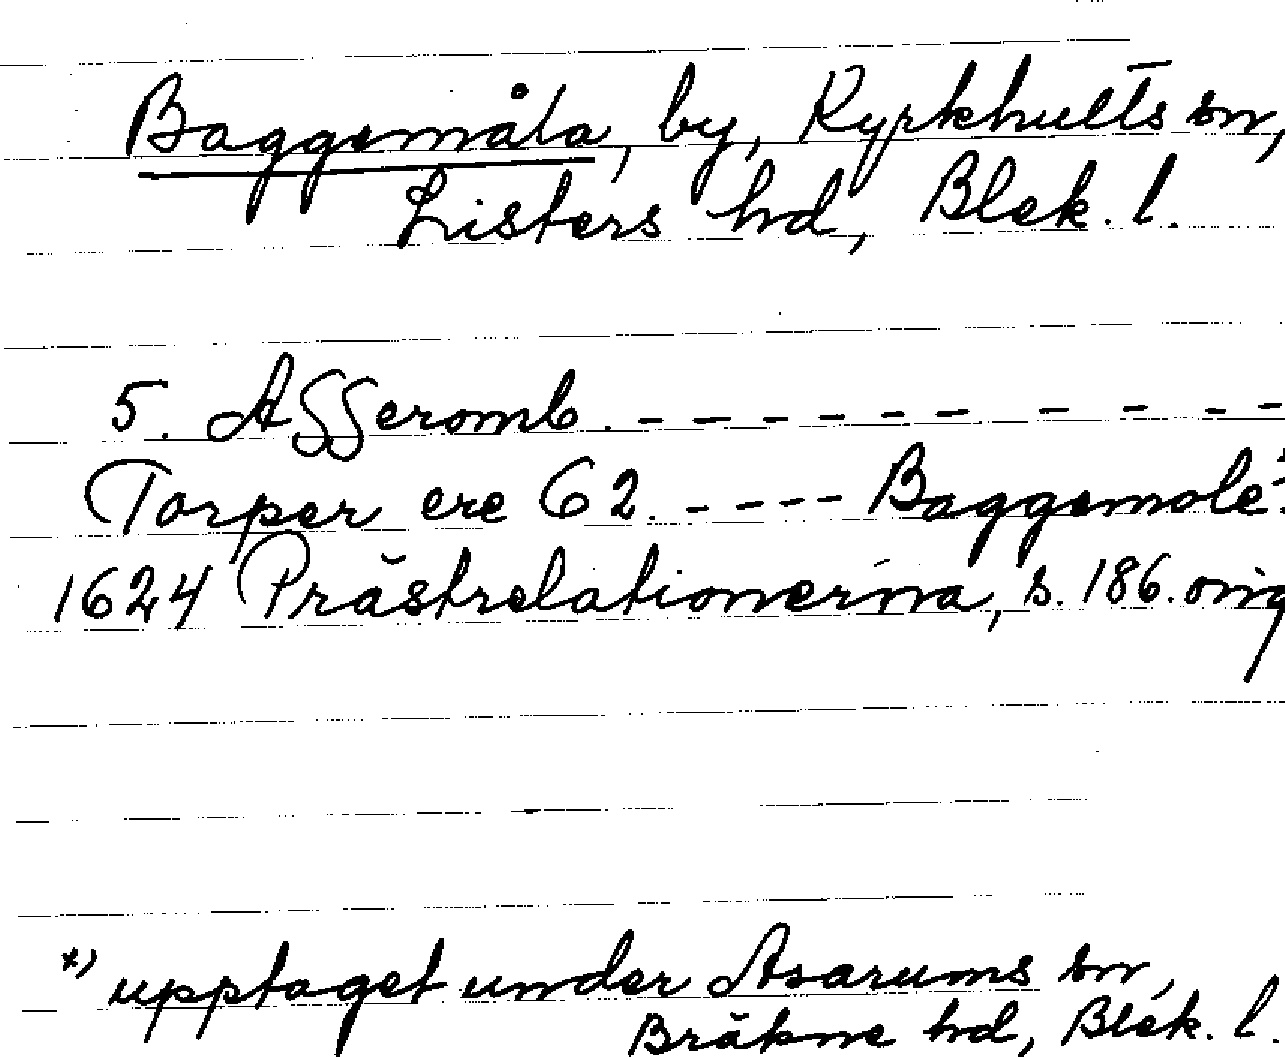 Baggemåla, by, Kyrkhults sn,
Listers hd, Blek. l.
5. Asseromb. - - - - - - - - - -
Torper ere 62. - - - - Baggemole
1624 Prästrelationerna, s. 186. orig
*) upptaget under Asarums sn,
Bräkne hd, Blek. l.